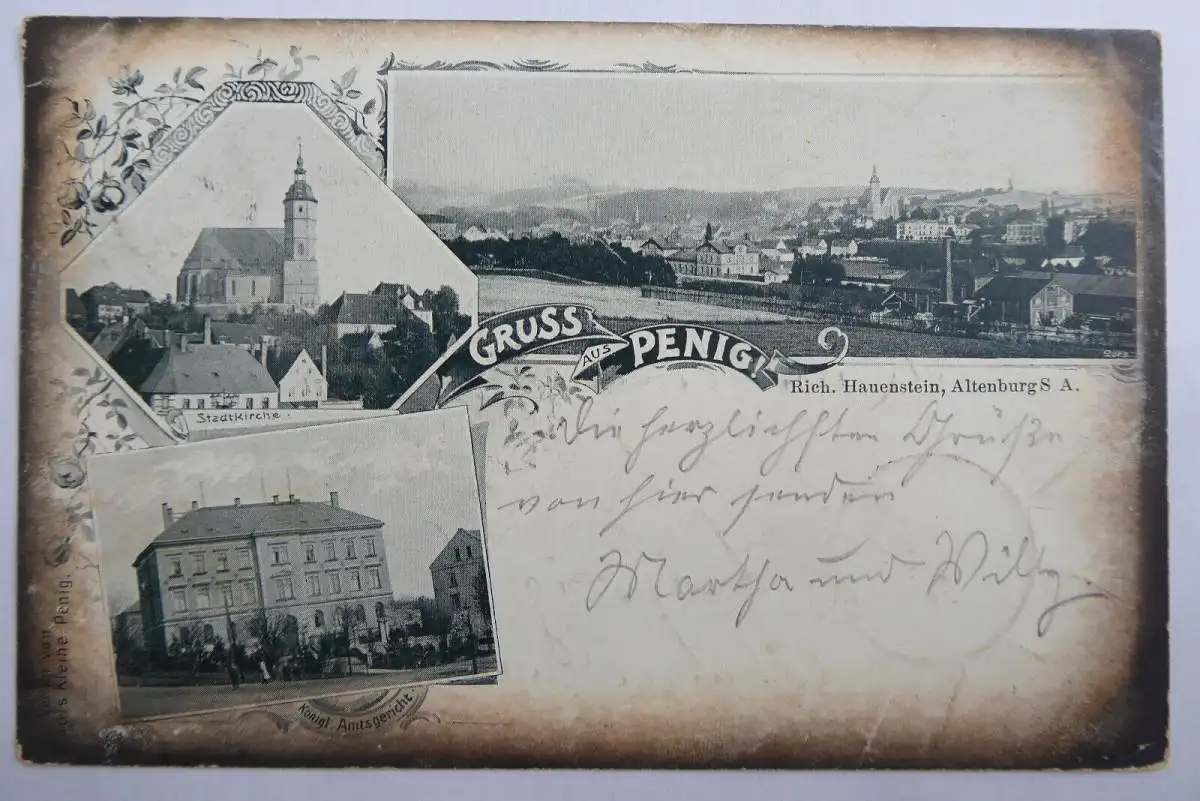 GRUSS AUS PENIG!
Rich. Hauenstein, Altenburg S A.
Stadtkirche.
Die herzlichsten Grüße
von hier senden
Martha und Willy.
Königl. Amtsgericht.
von
Kleine Penig.